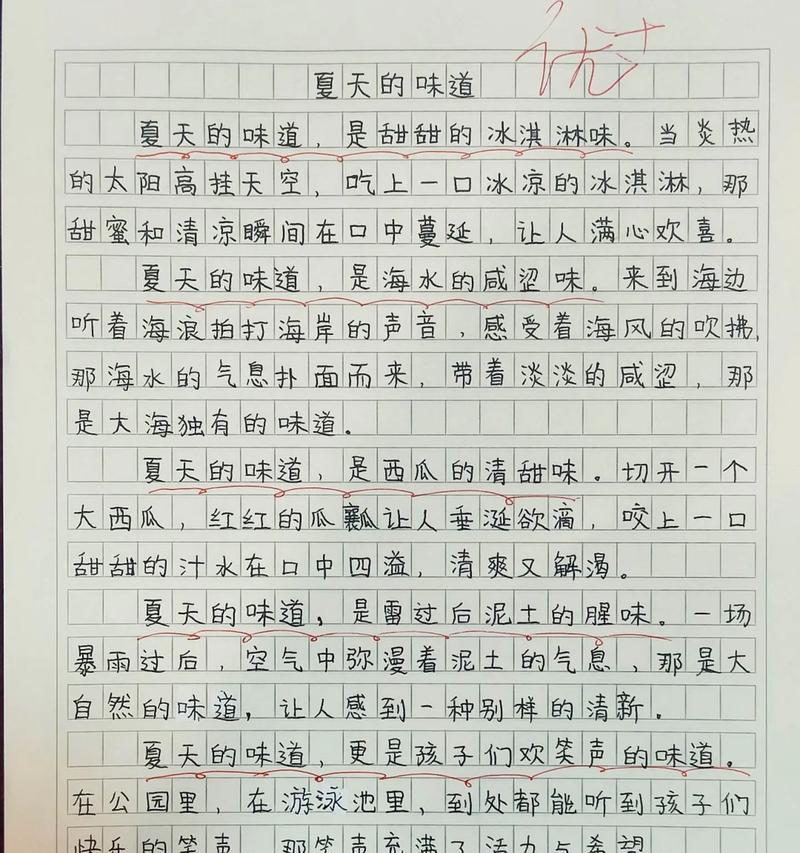 优+
夏天的味道
夏天的味道，是甜甜的冰淇淋味。当炎热
的太阳高挂天空，吃上一口冰凉的冰淇淋，那
甜蜜和清凉瞬间在口中蔓延，让人满心欢喜。
夏天的味道，是海水的咸涩味。来到海边
听着海浪拍打海岸的声音，感受着海风的吹拂，
那海水的气息扑面而来，带着淡淡的咸涩，那
是大海独有的味道。
夏天的味道，是西瓜的清甜味。切开一个
大西瓜，红红的瓜瓤让人垂涎欲滴，咬上一口
甜甜的汁水在口中四溢，清爽又解渴。
夏天的味道，是雷过后泥土的腥味。一场
暴雨过后，空气中弥漫着泥土的气息，那是大
自然的味道，让人感到一种别样的清新。
夏天的味道，更是孩子们欢笑声的味道。
在公园里，在游泳池里，到处都能听到孩子们
快乐的笑声，那笑声充满了活力与希望